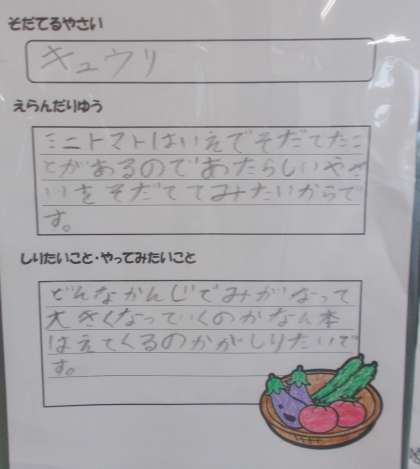 そだてるやさい
キュウリ
えらんだりゆう
ミニトマトはいえでそだてたこ
とがあるのであたらしいやさ
いをそだててみたいからで
す。
しりたいこと・やってみたいこと
どんなかんじでみがなって
大きくなっていくのかなん本
はえてくるのかがしりたいで
す。